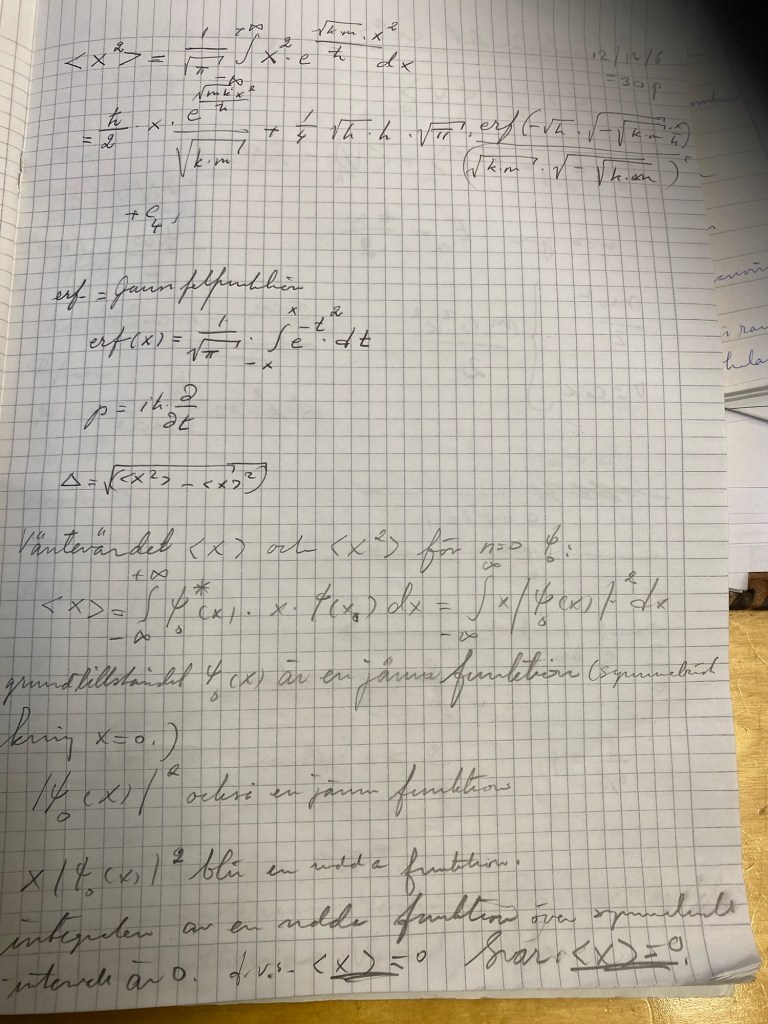 <x²> = 1/√π ∫_{-∞}^{+∞} x² · e^{√(km)·x²/ħ} dx
12/12/6
= 30 p
= ħ/2 · x · e^{√(mk)·x²/ħ}/√(k·m) + 1/4 √ħ · ħ · √π · erf(-√ħ · √(-√(k·m)) · x/ħ)/(√(k·m) · √(-√(k·m)))
+ C,
erf = Gauss felfunktion
erf(x) = 1/√π · ∫_{-x}^{x} e^{-t²} · dt
p = iħ · ∂/∂t
Δ = √(<x²> - <x>²)
Väntevärdet <x> och <x²> för n=0 ψ₀:
<x> = ∫_{-∞}^{+∞} ψ₀*(x) · x · ψ(x₀) dx = ∫_{-∞}^{∞} x|ψ₀(x)|² dx
grundtillståndet ψ₀(x) är en jämn funktion (symmetrisk
kring x=0.)
|ψ₀(x)|² också en jämn funktion
x|ψ₀(x)|² blir en udda funktion.
integralen av en udda funktion över symmetriskt
intervall är 0. d.v.s. <x> = 0 Svar: <x> = 0.